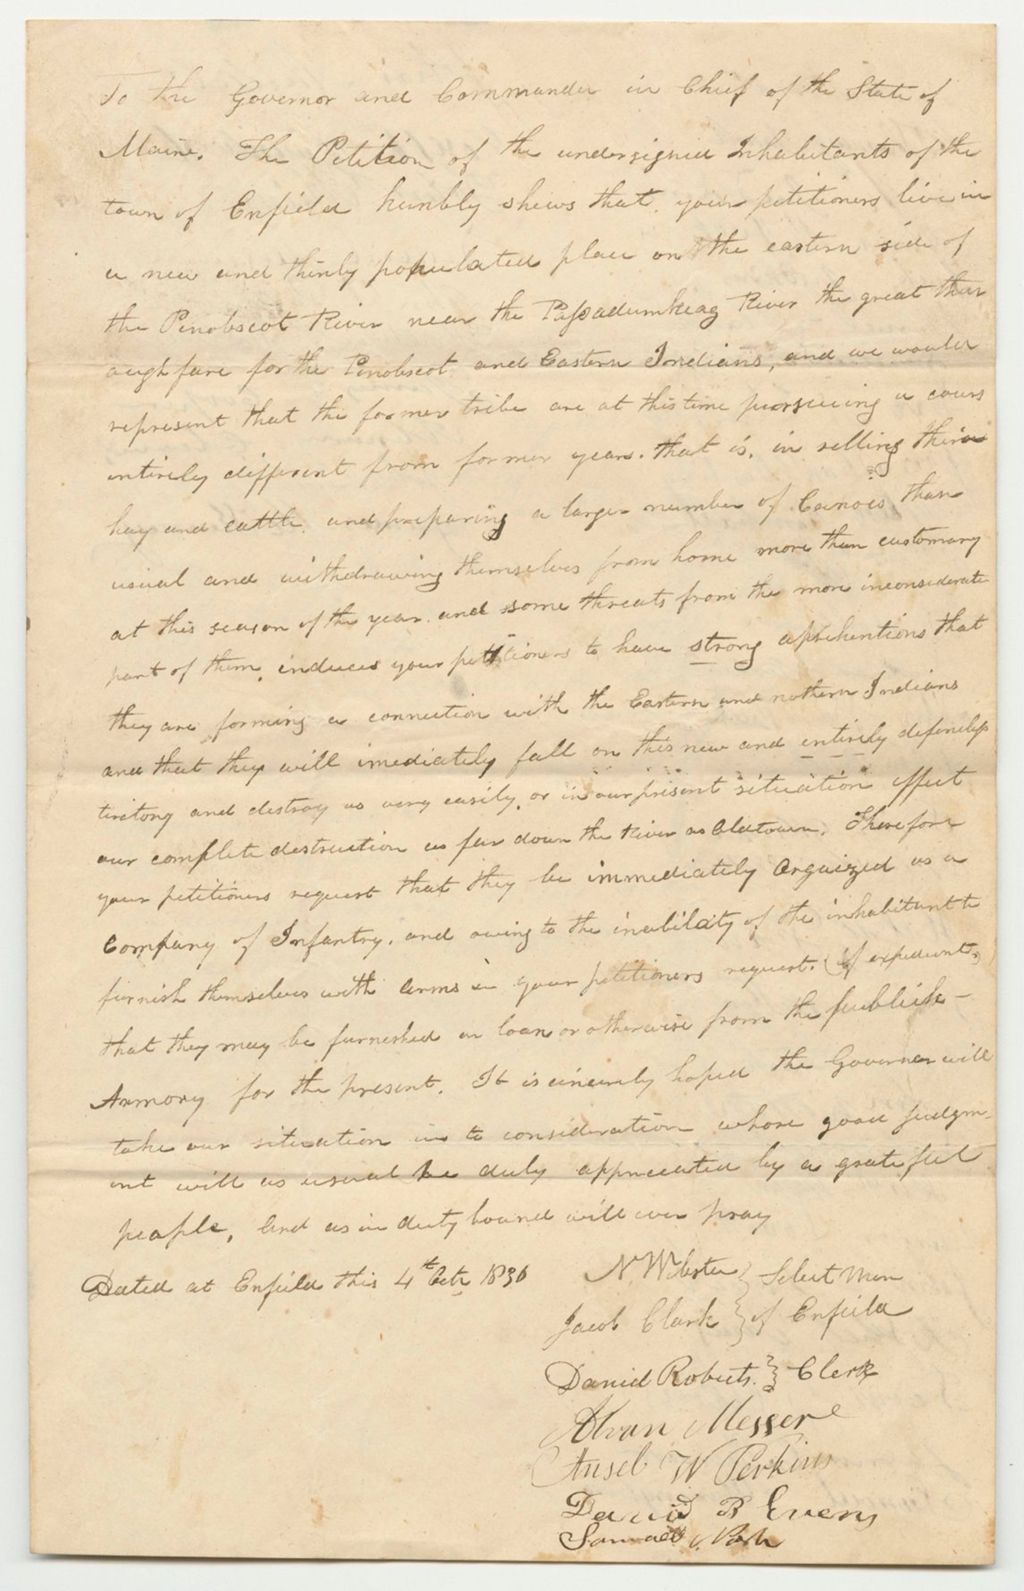 To the Governor and Commander in Chief of the State of
Maine. The Petition of the undersigned Inhabitants of the
town of Enfield humbly shews that your petitioners live in
a new and thinly populated place on the eastern side of
the Penobscot River near the Passadumkeag River the great thor
oughfare for the Penobscot and Eastern Indians, and we would
represent that the former tribe are at this time pursueing a cours
intirely different from former years. that is, in selling their
hay and cattle and preparing a larger number of Canoes than
usual and withdrawing themselves from home more than customary
at this season of the year. and some threats from the more inconsiderate
part of them, induces your petitioners to have strong aprehentions that
they are forming a connection with the Eastern and nothern Indians
and that they will imediately fall on this new and entirely defenceless
tiritory and destroy us very easily, or in our present situation effect
our complete destruction as far down the River as Oldtown, Therefore
your petitioners request that they be immediately Orgaized as a
Company of Infantry. and owing to the inability of the inhabitant to
furnish themselves with arms is your petitioners request. (if expedient)
that they may be furnished on loan or otherwise from the publick -
Armory for the present. It is sincerely hoped the Governor will
take our situation in to consideration whose good judgm-
ent will as usual be duly appreciated by a grateful
people, And as in duty bound will ever pray
Dated at Enfield this 4th Octr 1836
N Webster } Select Men
Jacob Clark } of Enfield
Daniel Roberts } Clerk
Alvan Messer
Ansel W Perkins
David R Evens
Samuel